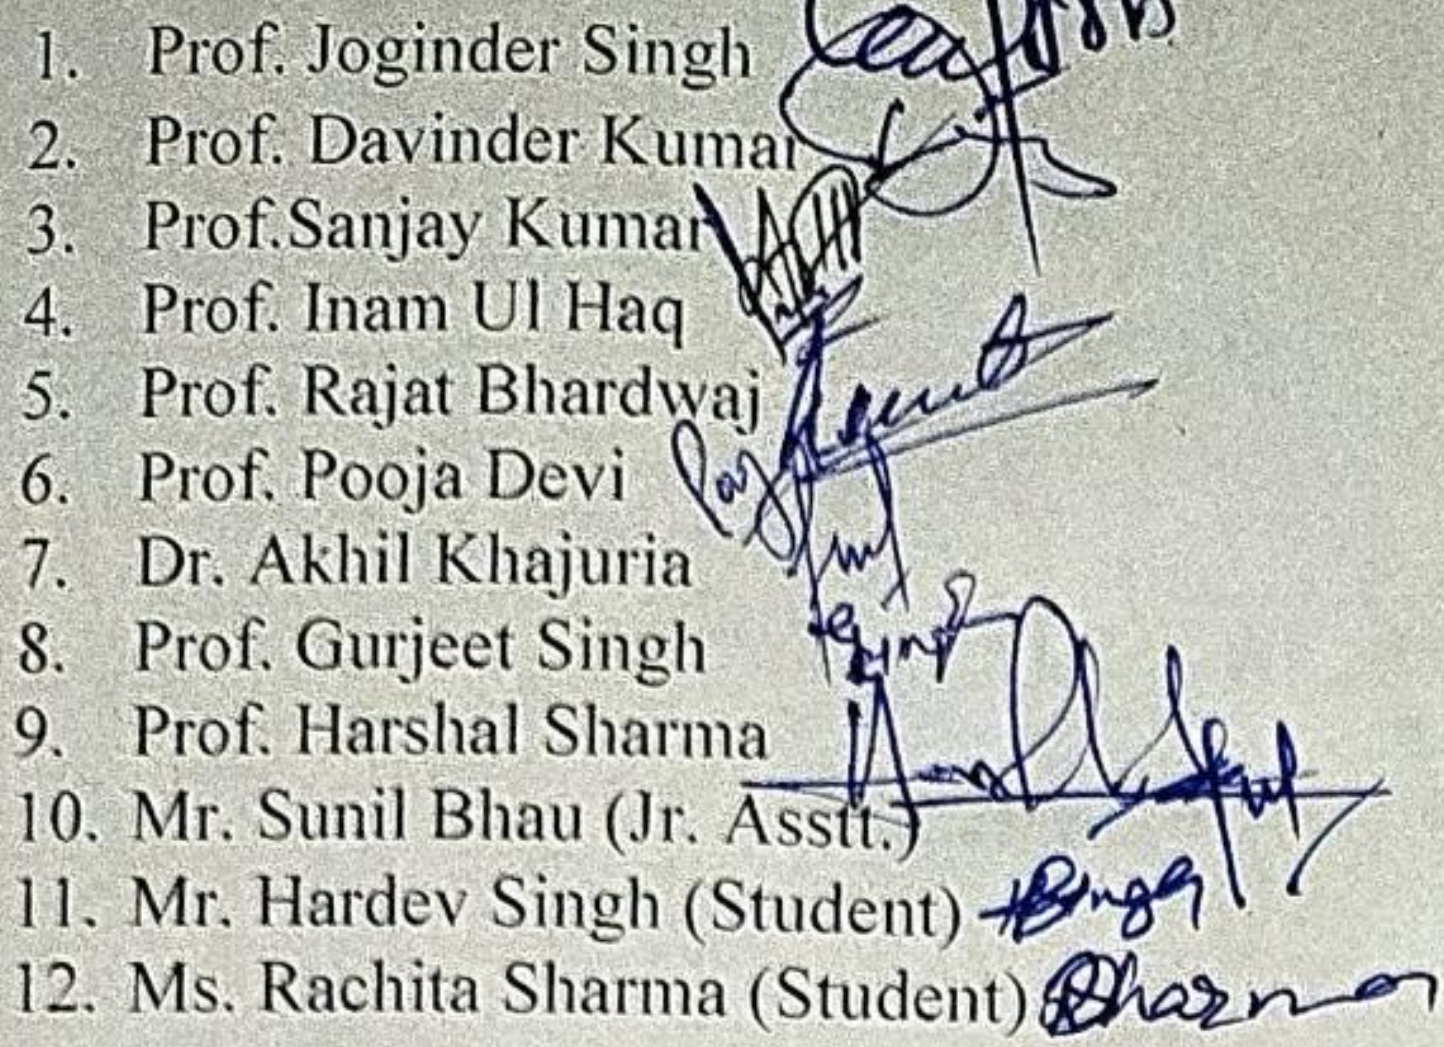 1. Prof. Joginder Singh
2. Prof. Davinder Kumar
3. Prof.Sanjay Kumar
4. Prof. Inam Ul Haq
5. Prof. Rajat Bhardwaj
6. Prof. Pooja Devi
7. Dr. Akhil Khajuria
8. Prof. Gurjeet Singh
9. Prof. Harshal Sharma
10. Mr. Sunil Bhau (Jr. Asstt.)
11. Mr. Hardev Singh (Student)
12. Ms. Rachita Sharma (Student)